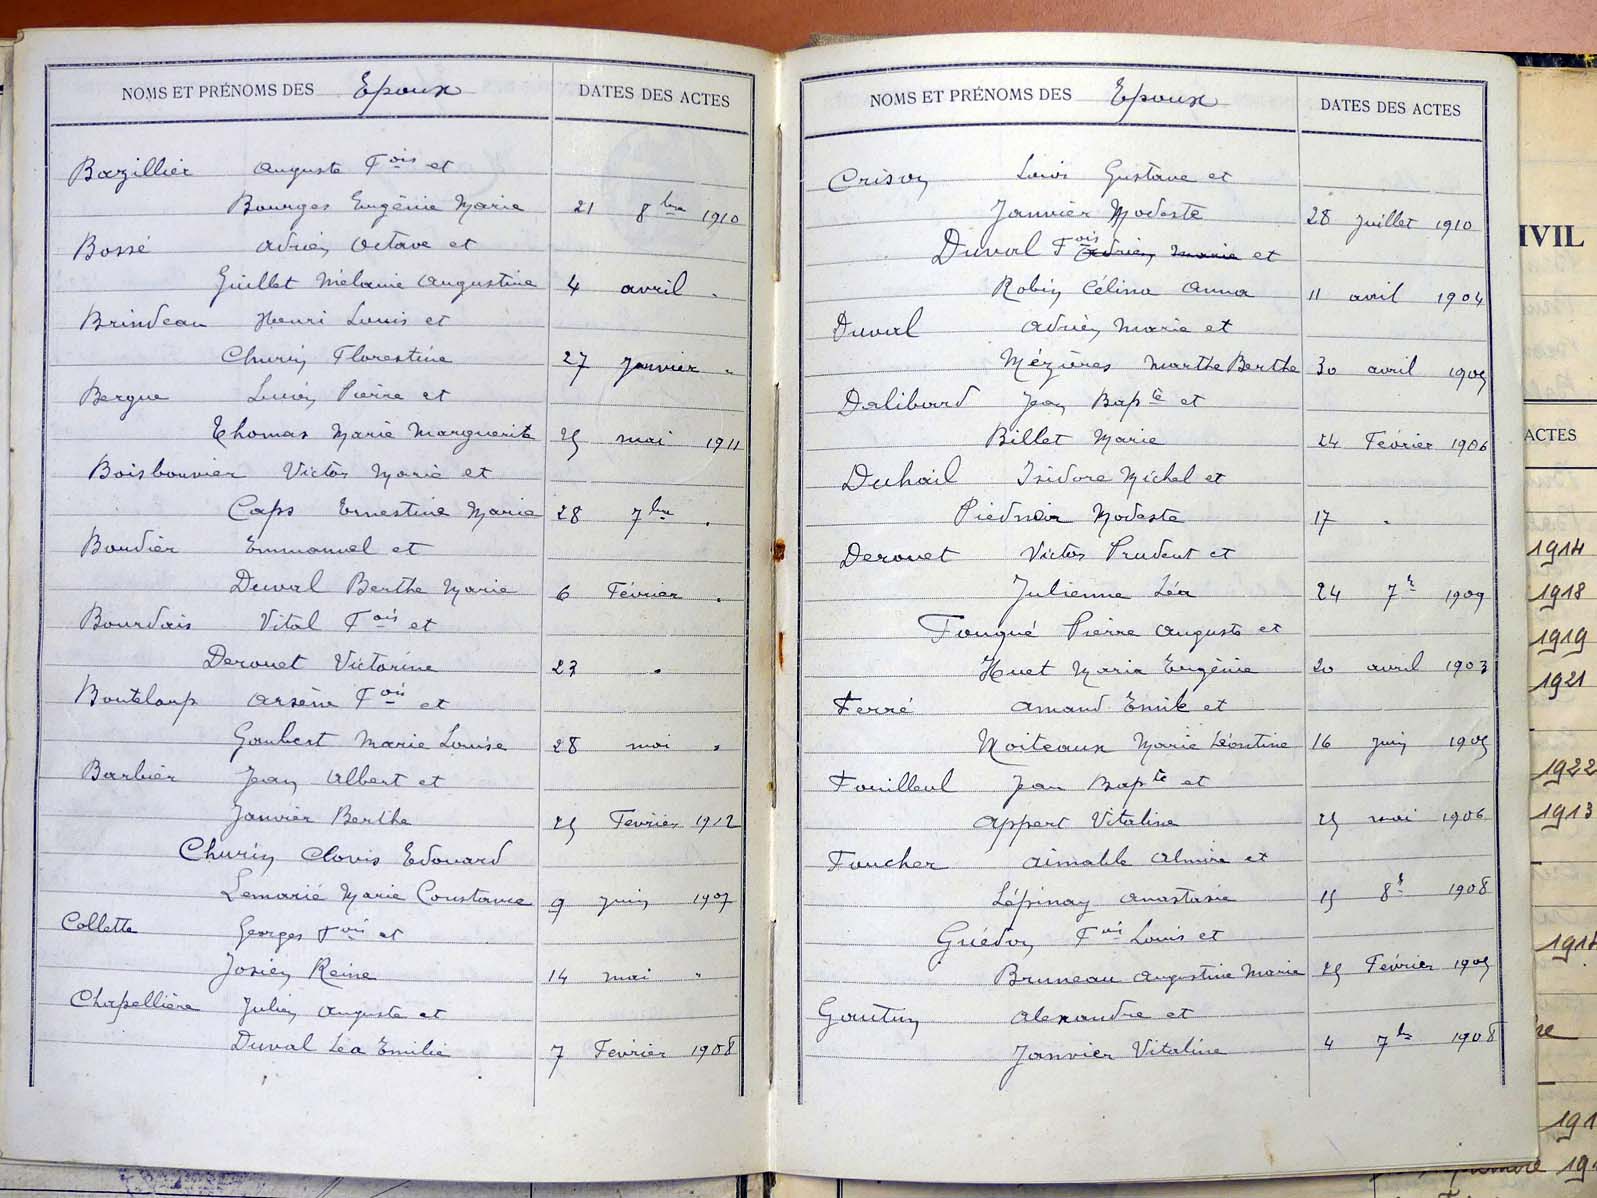 NOMS ET PRÉNOMS DES Epoux DATES DES ACTES
Bazillier Auguste Fois et
Bourges Eugénie Marie 21 8bre 1910
Bossé Adrien Octave et
Guillet Mélanie Augustine 4 avril "
Brindeau Henri Louis et
Churin Florestine 27 Janvier "
Bergue Lucien Pierre et
Thomas Marie Marguerite 25 mai 1911
Boisbouvier Victor Marie et
Caps Ernestine Marie 28 7bre "
Boudier Emmanuel et
Duval Berthe Marie 6 Février "
Bourdais Vital Fois et
Derouet Victorine 23 "
Bouteloup Arsène Fois et
Goubert Marie Louise 28 mai "
Barbier Jean Albert et
Janvier Berthe 25 Février 1912
Churin Clovis Edouard
Lemarié Marie Constance 9 Juin 1907
Collette Georges Fois et
Josien Reine 14 mai "
Chapellière Julien Auguste et
Duval Léa Emilie 7 Février 1908
NOMS ET PRÉNOMS DES Epoux DATES DES ACTES
Crison Louis Gustave et
Janvier Modeste 28 Juillet 1910
Duval Fois Adrien Marie et
Robin Célina Anna 11 avril 1904
Duval Adrien Marie et
Mézières Marthe Berthe 30 avril 1905
Dalibard Jean Bapte et
Billet Marie 24 Février 1906
Duhail Isidore Michel et
Piednoir Modeste 17 "
Derouet Victor Prudent et
Julienne Léa 24 7b 1909
Fouqué Pierre Auguste et
Huet Maria Eugénie 20 avril 1903
Ferré Amand Emile et
Noiteaux Marie Léontine 16 Juin 1905
Fouilleul Jean Bapte et
Appert Vitaline 25 mai 1906
Foucher Aimable Almire et
Lépinay Anastasie 15 8b 1908
Griédon Fois Louis et
Bruneau Augustine Marie 25 Février 1905
Goutun Alexandre et
Janvier Vitaline 4 7b 1908
IVIL
ACTES
1914
1918
1919
1921
1922
1913